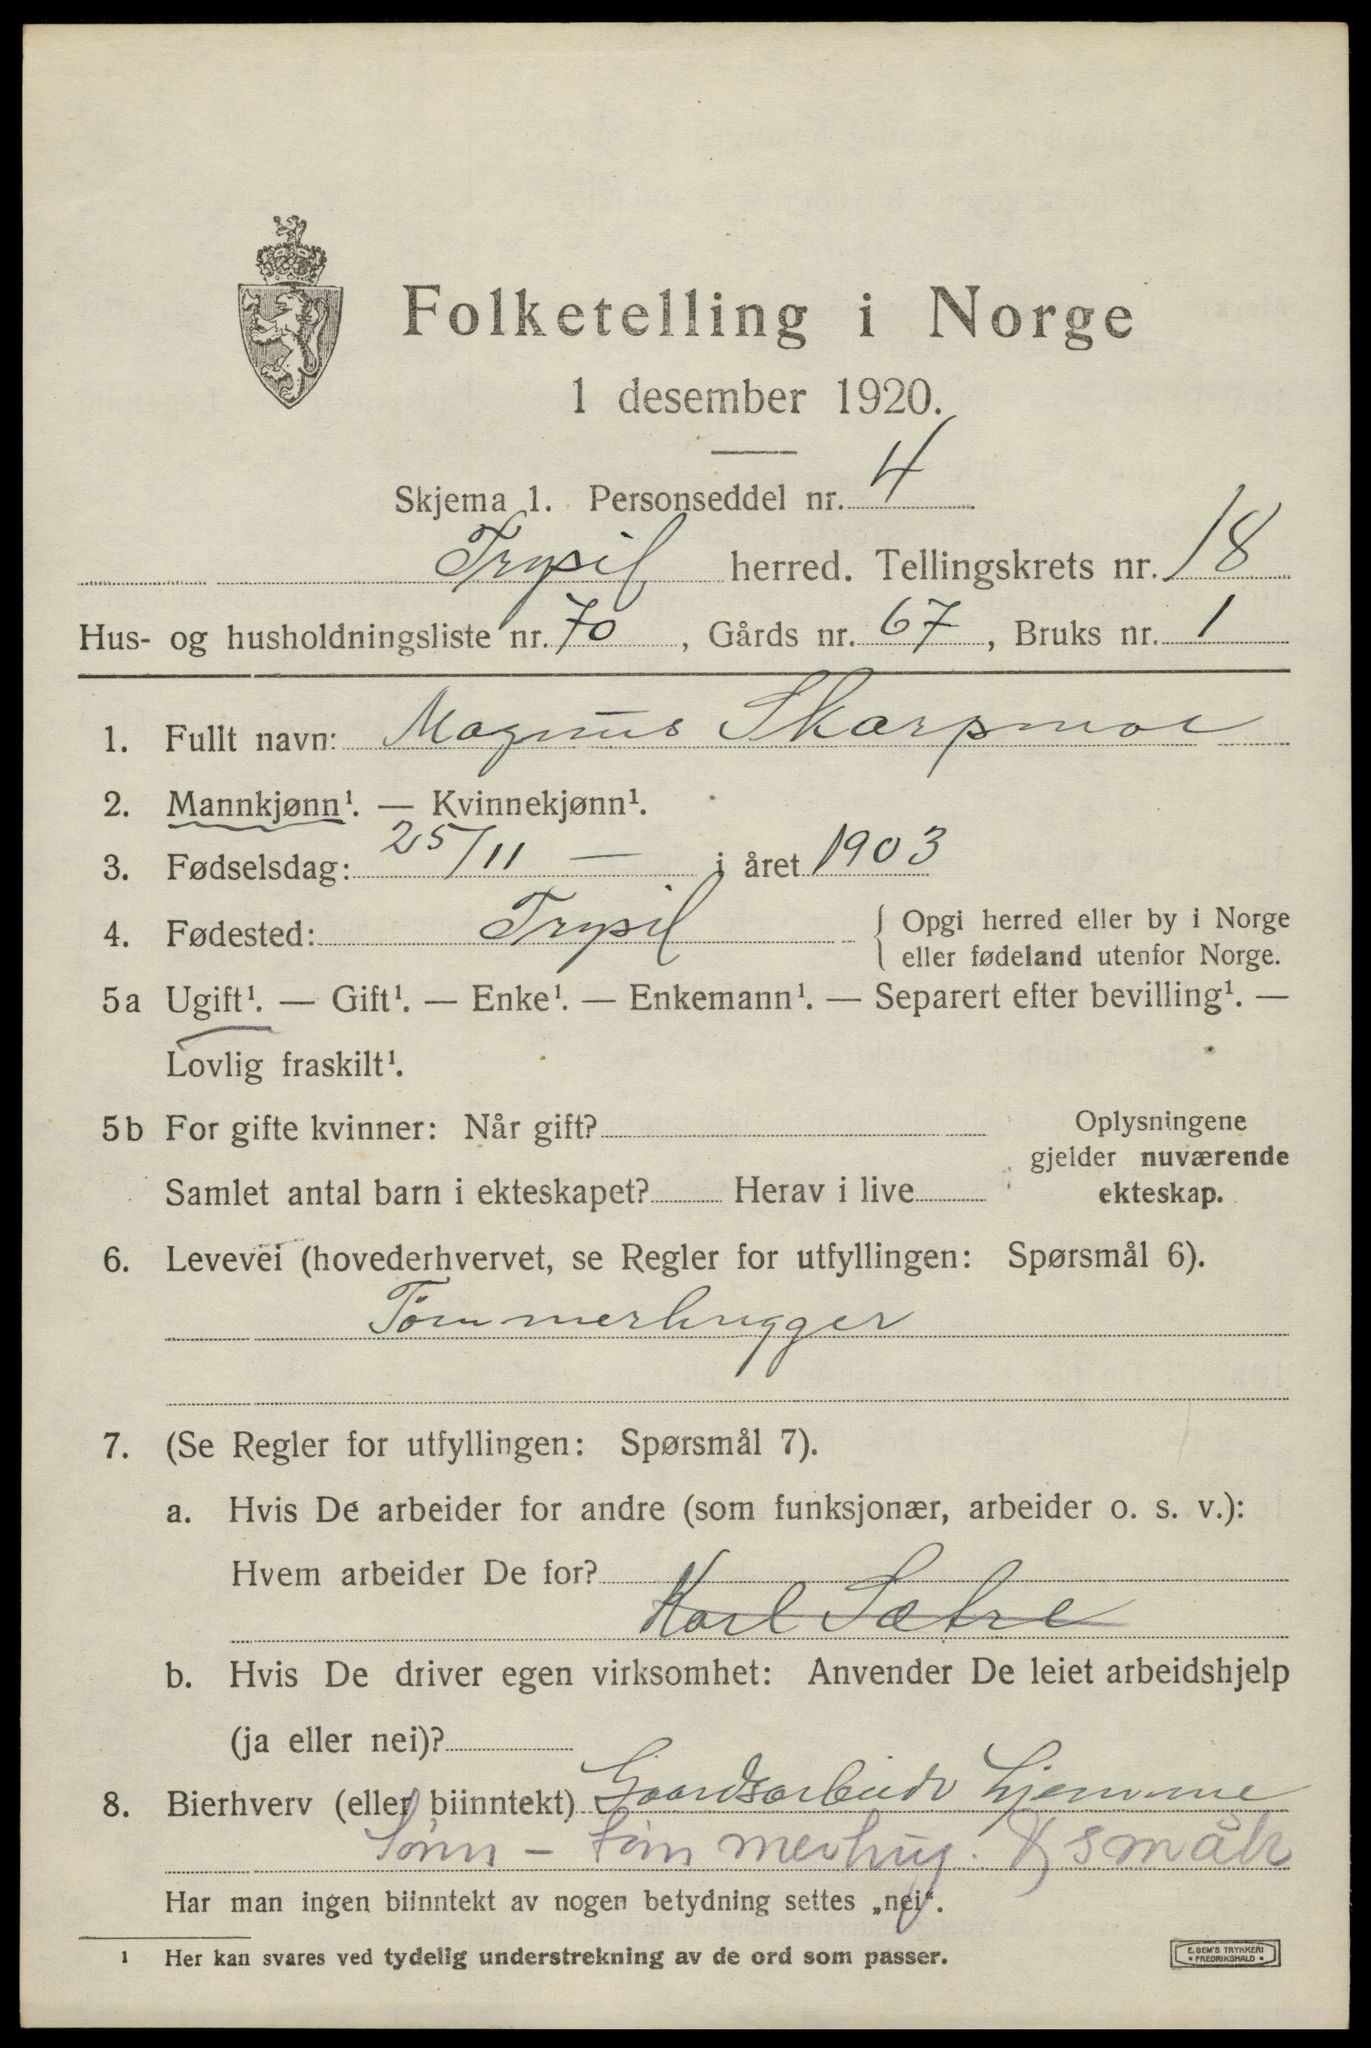 Folketelling i Norge
1 desember 1920.
Skjema 1. Personseddel nr. 4
Trysil herred. Tellingskrets nr. 18
Hus- og husholdningsliste nr. 70, Gårds nr. 67, Bruks nr. 1
1. Fullt navn: Magnus Skarpmoe
2. Mannkjønn¹. — Kvinnekjønn¹.
3. Fødselsdag: 25/11 — i året 1903
4. Fødested: Trysil { Opgi herred eller by i Norge
eller fødeland utenfor Norge.
5a Ugift¹. — Gift¹. — Enke¹. — Enkemann¹. — Separert efter bevilling¹. —
Lovlig fraskilt¹.
5b For gifte kvinner: Når gift?
Samlet antal barn i ekteskapet? Herav i live
Oplysningene
gjelder nuværende
ekteskap.
6. Levevei (hovederhvervet, se Regler for utfyllingen: Spørsmål 6).
Tømmerhugger
7. (Se Regler for utfyllingen: Spørsmål 7).
a. Hvis De arbeider for andre (som funksjonær, arbeider o. s. v.):
Hvem arbeider De for?
Karl Sætre
b. Hvis De driver egen virksomhet: Anvender De leiet arbeidshjelp
(ja eller nei)?
8. Bierhverv (eller biinntekt) Gaardsarbeide hjemme
Sønn - tømmerhug.
Har man ingen biinntekt av nogen betydning settes „nei“.
¹ Her kan svares ved tydelig understrekning av de ord som passer.
E. SEM'S TRYKKERI
FREDRIKSHALD